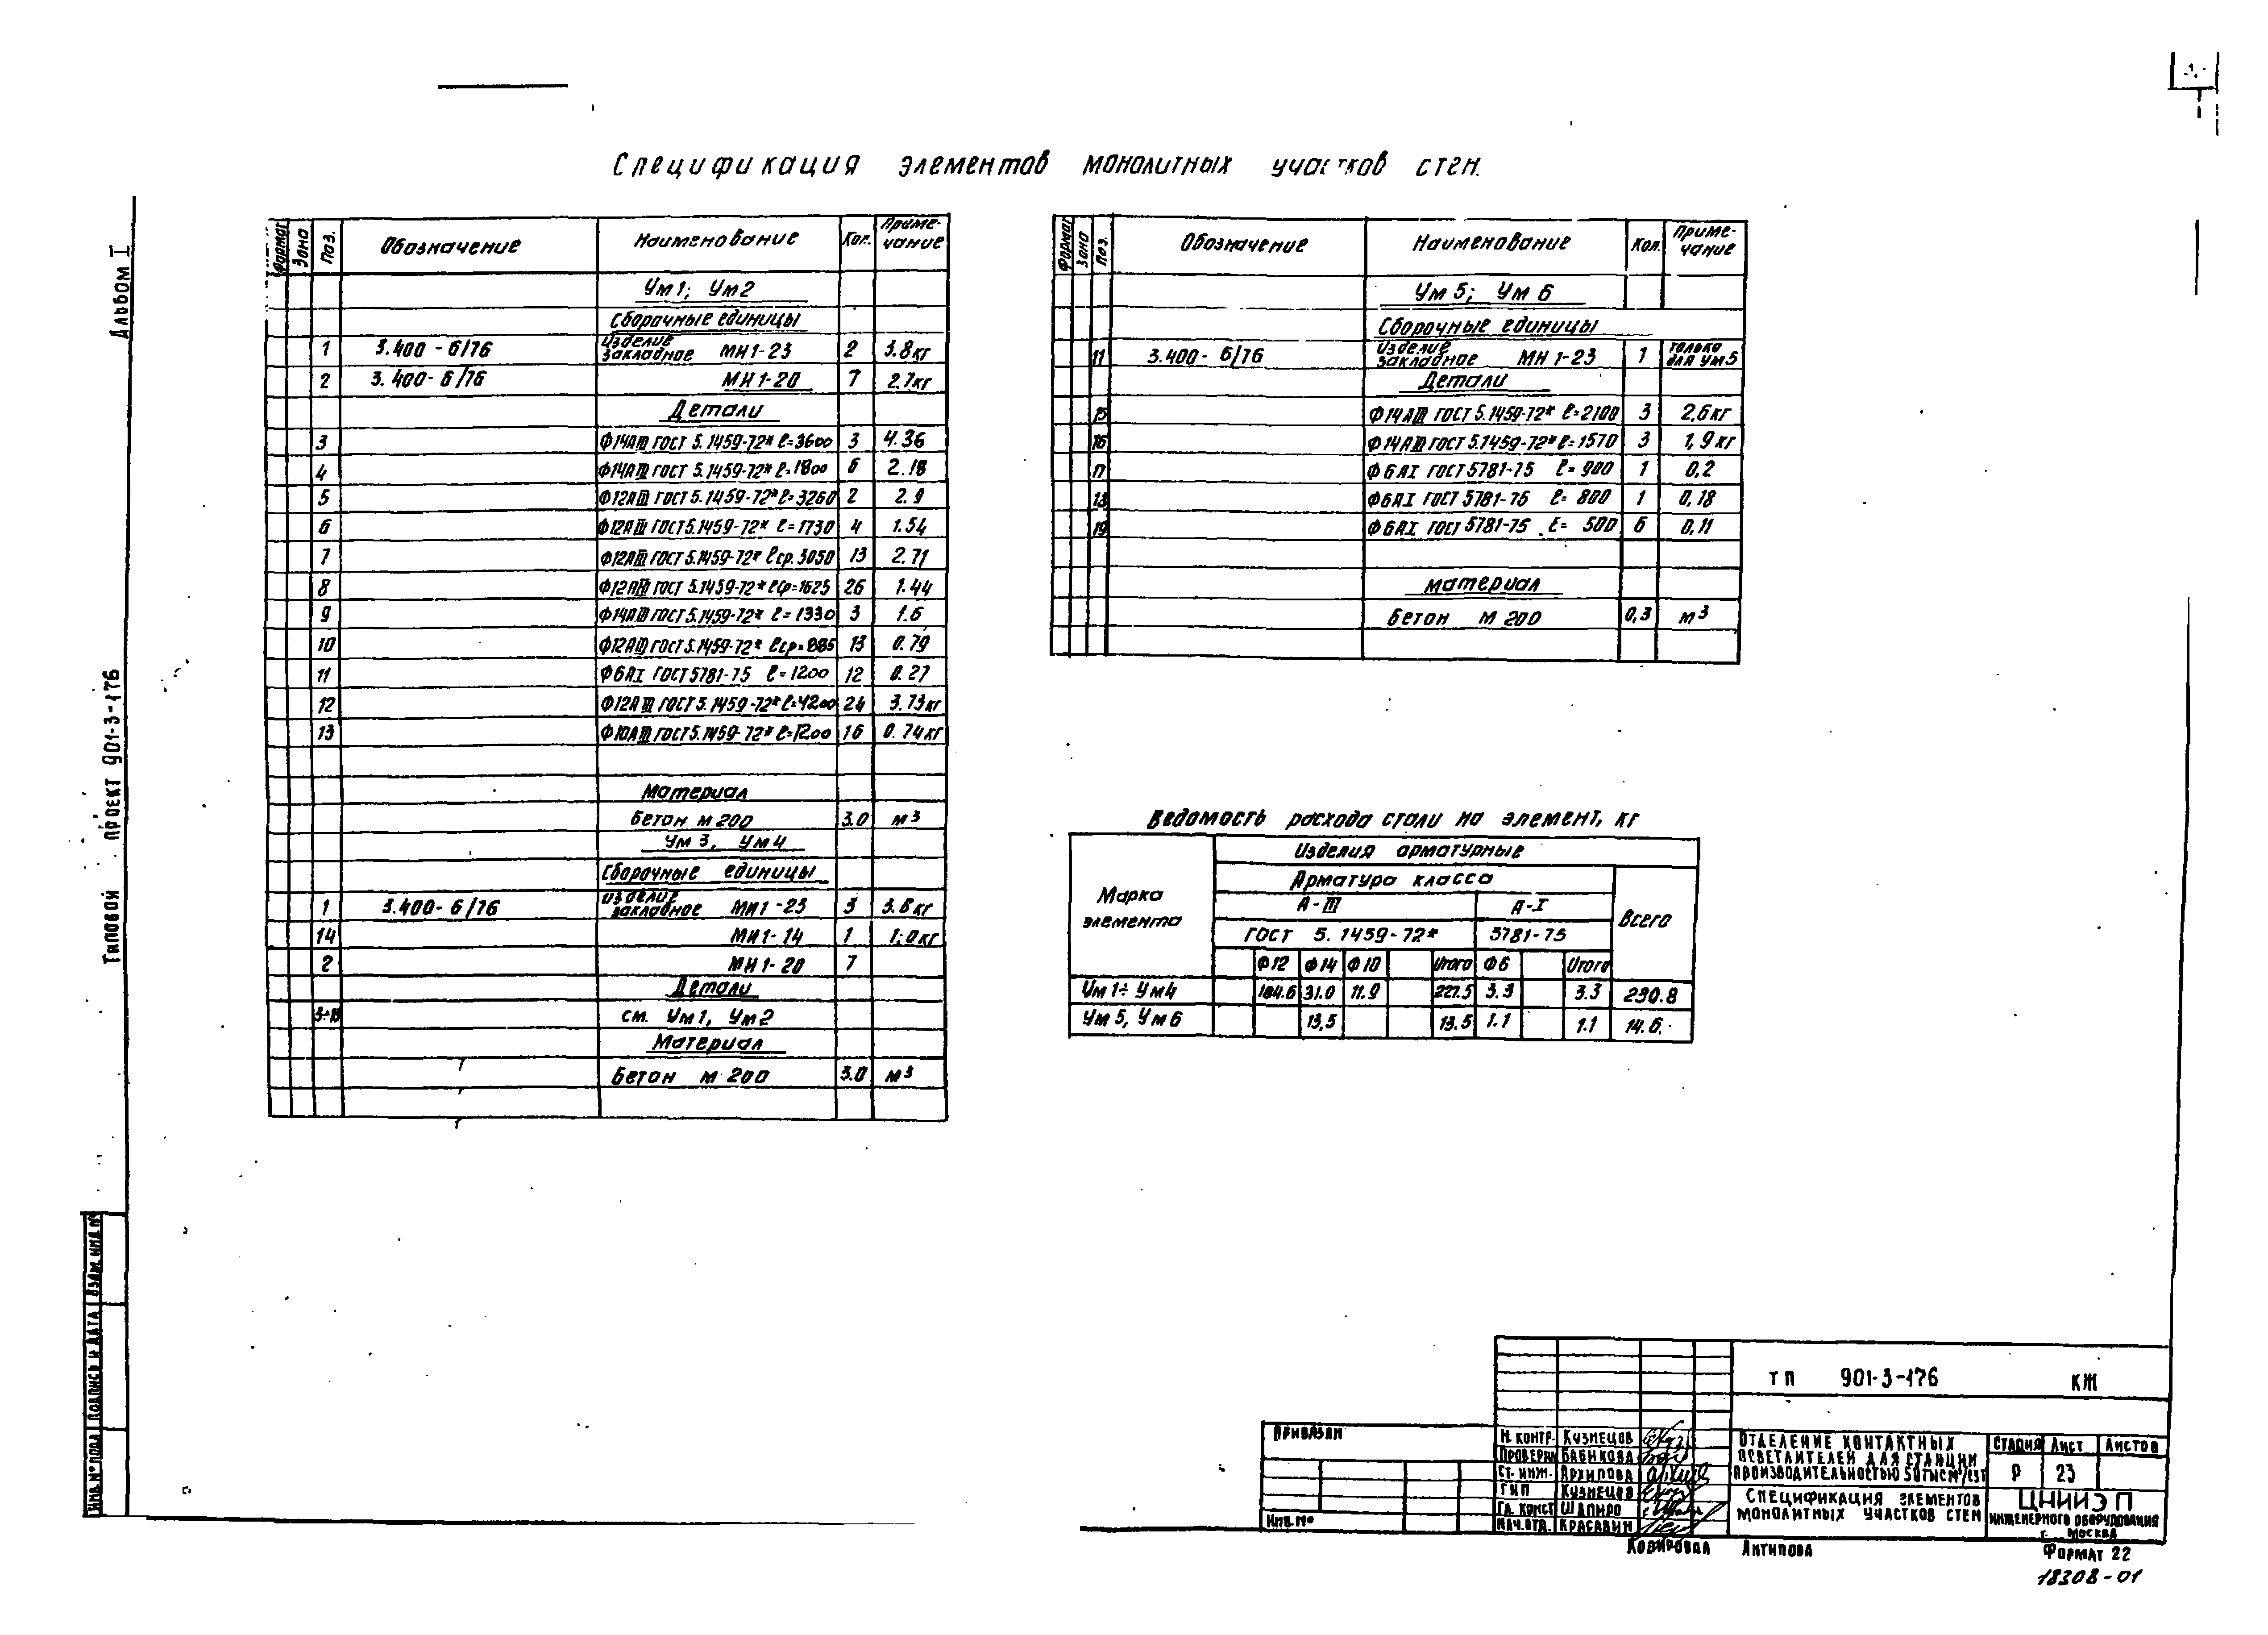 Спецификация элементов монолитных участков стен.
Альбом I
Типовой проект 901-3-176
Формат Зона Поз. Обозначение Наименование Кол. Приме-чание
Ум1; Ум2
Сборочные единицы
1 3.400-6/76 изделие закладное МН1-23 2 3.8кг
2 3.400-6/76 МН1-20 7 2.7кг
Детали
3 Ф14АIII ГОСТ 5.1459-72* ℓ=3600 3 4.36
4 Ф14АIII ГОСТ 5.1459-72* ℓ=1800 6 2.18
5 Ф12АIII ГОСТ 5.1459-72* ℓ=3260 2 2.9
6 Ф12АIII ГОСТ 5.1459-72* ℓ=1730 4 1.54
7 Ф12АIII ГОСТ 5.1459-72* ℓср.3050 13 2.71
8 Ф12АIII ГОСТ 5.1459-72* ℓср=1625 26 1.44
9 Ф14АIII ГОСТ 5.1459-72* ℓ=1330 3 1.6
10 Ф12АIII ГОСТ 5.1459-72* ℓср=885 13 0.79
11 Ф6АI ГОСТ 5781-75 ℓ=1200 12 0.27
12 Ф12АIII ГОСТ 5.1459-72* ℓ=4200 24 3.73кг
13 Ф10АIII ГОСТ 5.1459-72* ℓ=1200 16 0.74кг
Материал
Бетон м 200 3.0 м³
Ум 3, Ум4
Сборочные единицы
1 3.400-6/76 изделие закладное МН1-23 3 3.8кг
14 МН1-14 1 1.0кг
2 МН1-20 7
Детали
3÷13 см. Ум1, Ум2
Материал
Бетон м 200 3.0 м³
Формат Зона Поз. Обозначение Наименование Кол. Приме-чание
Ум 5; Ум 6
Сборочные единицы
11 3.400-6/76 изделие закладное МН 1-23 1 только для Ум5
Детали
15 Ф14АIII ГОСТ 5.1459-72* ℓ=2100 3 2,6кг
16 Ф14АIII ГОСТ 5.1459-72* ℓ=1570 3 1,9кг
17 Ф6АI ГОСТ 5781-75 ℓ=900 1 0,2
18 Ф6АI ГОСТ 5781-75 ℓ=800 1 0,18
19 Ф6АI ГОСТ 5781-75 ℓ=500 6 0,11
материал
Бетон М 200 0,3 м³
Ведомость расхода стали на элемент, кг
Марка элемента Изделия арматурные
Арматура класса Всего
А-III А-I
ГОСТ 5.1459-72* 5781-75
Ф12 Ф14 Ф10 Итого Ф6 Итого
Ум 1÷Ум4 184.6 31.0 11.9 227.5 3.3 3.3 230.8
Ум 5, Ум 6 13,5 13.5 1.1 1.1 14.6
Инв.№ подл. Подпись и дата Взам.инв.№
Привязан
Инв.№
Н.контр. Кузнецов
Проверил Бабикова
Ст.инж. Архипова
ГИП Кузнецов
Гл.конст Шапиро
Нач.отд. Красавин
ТП 901-3-176 КЖ
Отделение контактных осветлителей для станции производительностью 50 тыс м³/сут
Стадия Лист Листов
Р 23
Спецификация элементов монолитных участков стен
ЦНИИЭП
инженерного оборудования
г. Москва
Копировал Антипова
Формат 22
18308-01